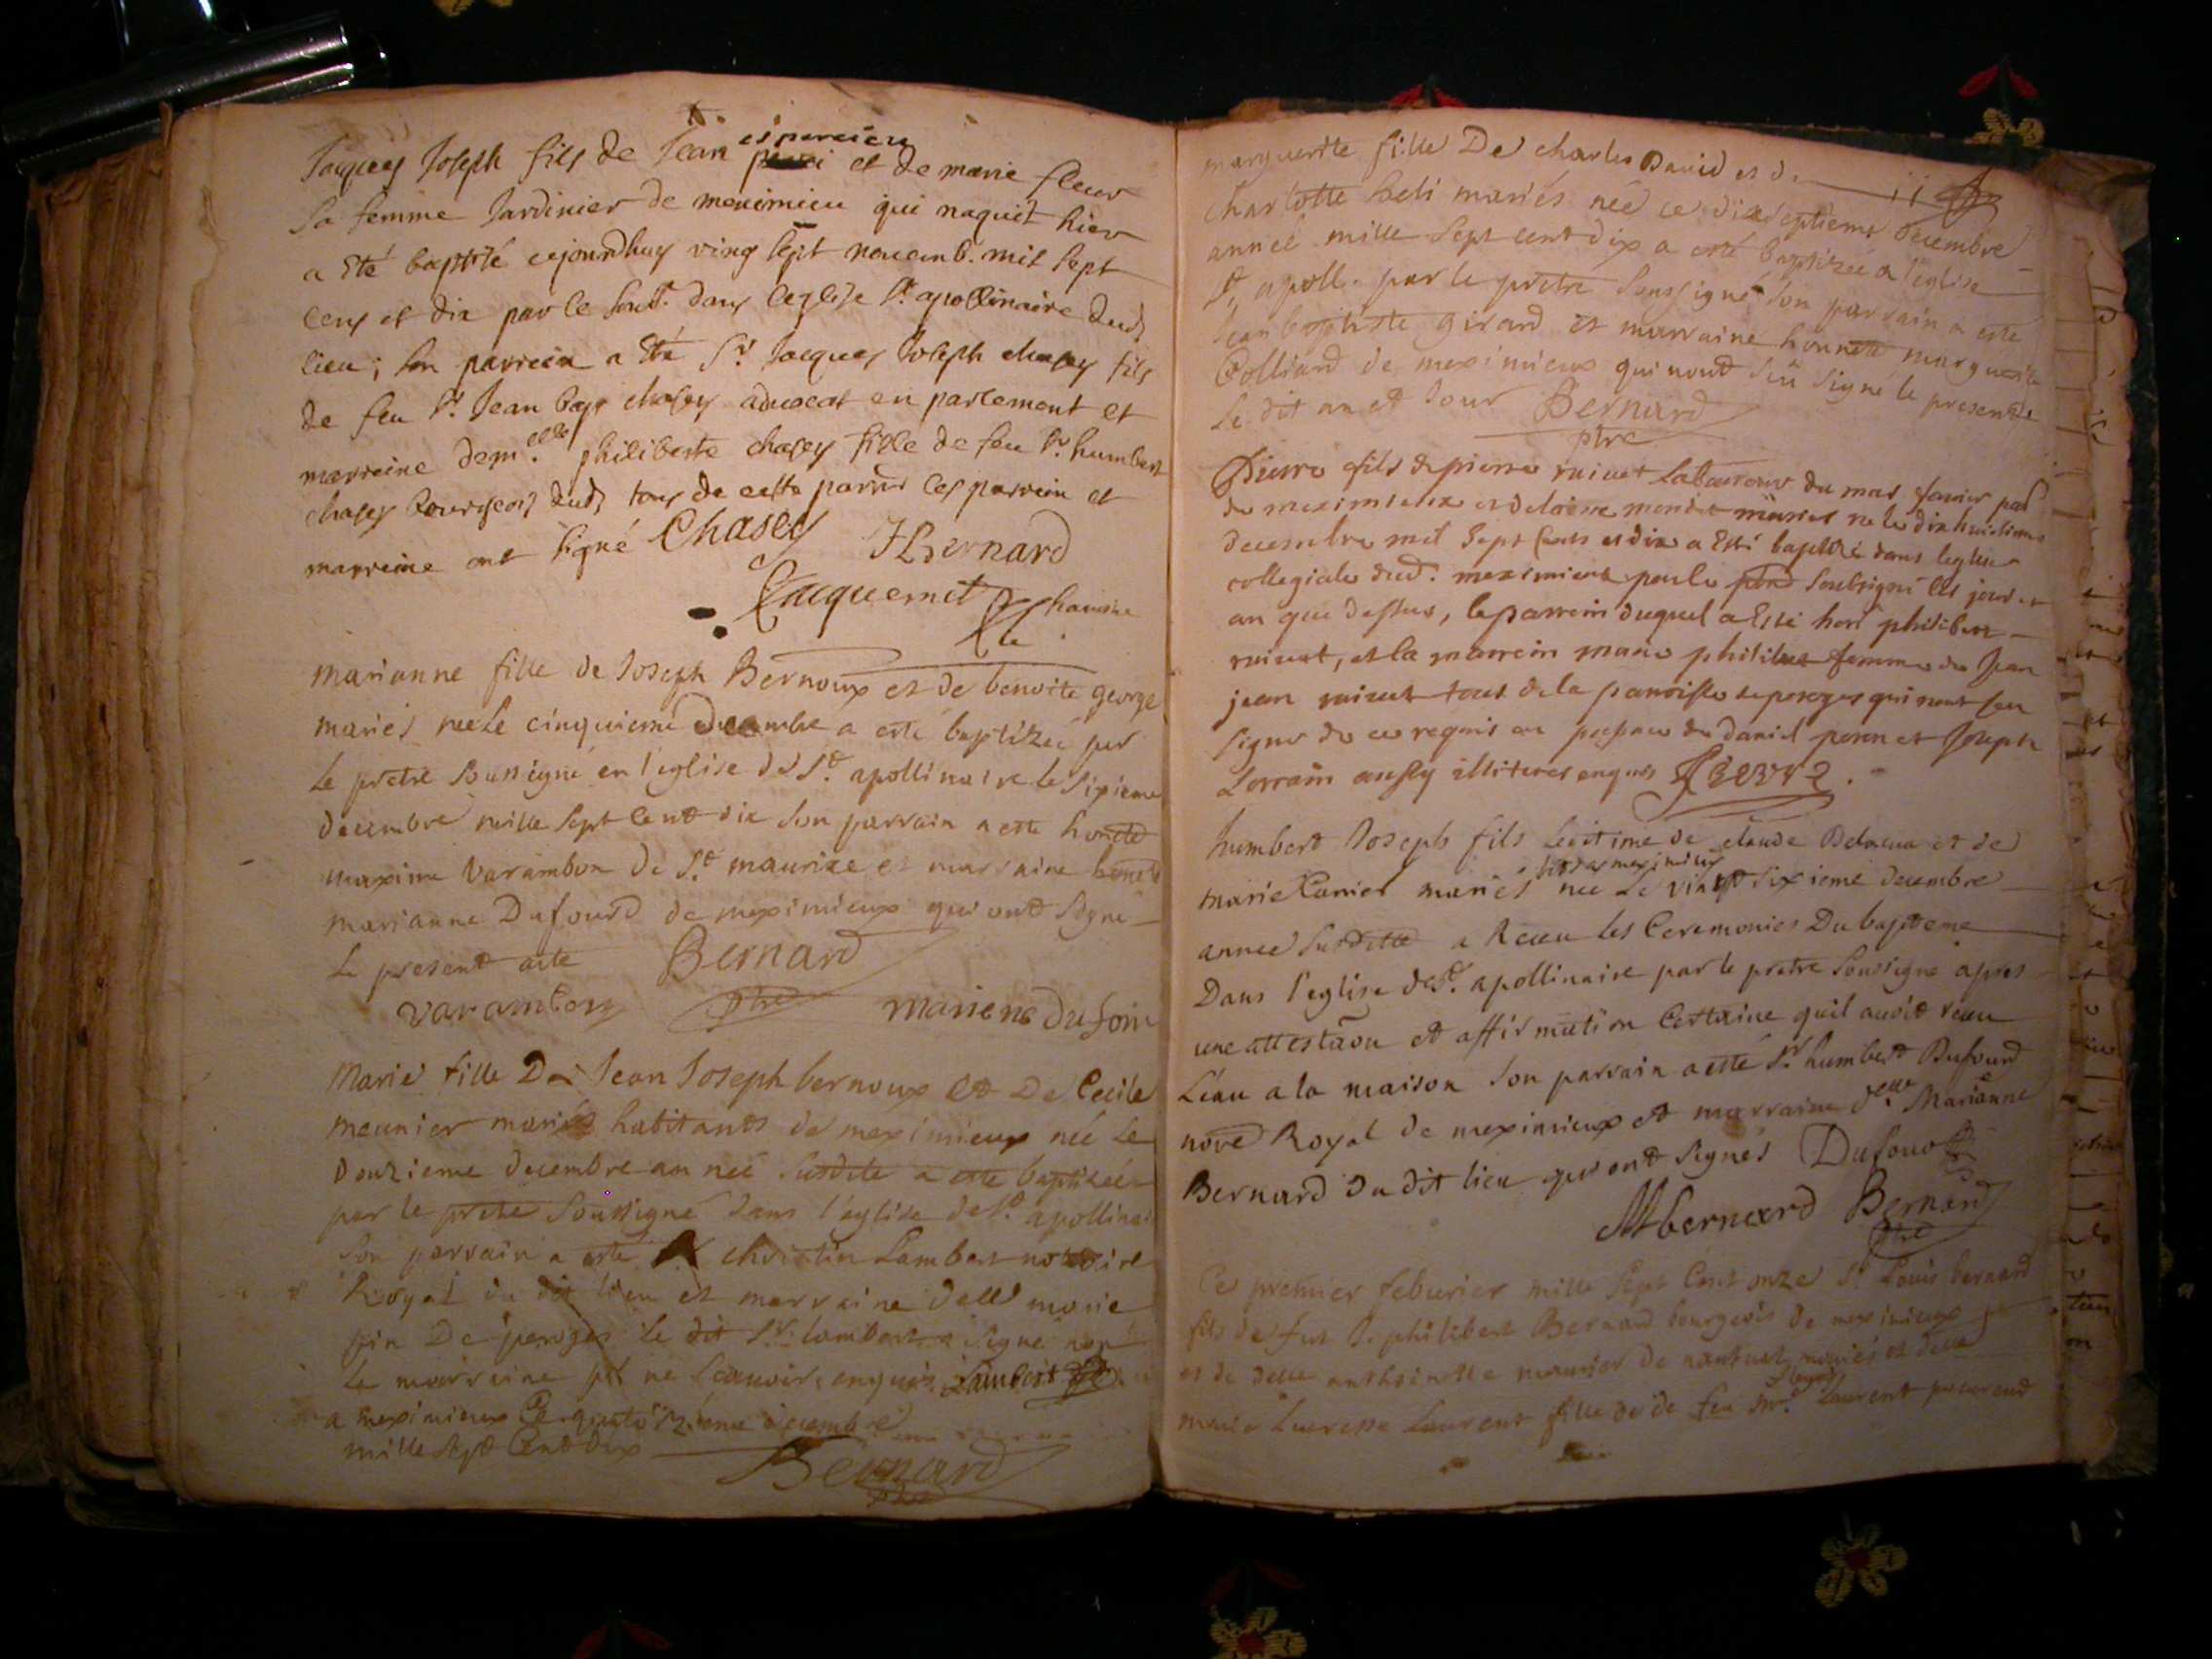 Jacques Joseph fils de Jean esparcieu et de marie fleur
sa femme Jardinier de meximieu qui naquit hier
a Eté baptisé cejourdhuy ving sept novemb. mil sept
cens et dix par le sous.é dans leglise St. apollinaire dud
lieu; son parrein a Eté Sr. Jacques Joseph chasey fils
de feu Sr. Jean bapt chasey advocat en parlement et
marreine dem.elle philiberte chasey fille de feu Sr. humbert
chasey bourgeois dud, tous de cette parr. les parrein et
marreine ont signé Chasey JLBernard
Jacquemet Chanoine
marianne fille de Joseph Bernoux et de benoite george
mariés née Le cinquieme decembre a esté baptizée par
Le pretre soussigné en l'eglise de St. apollinaire le sixieme
decembre mille sept cent dix son parrain a este honete
maxime Varambon de St. maurize et marraine honete
marianne Dufourd de meximieux qui ont signé
Le present acte Bernard
varambon ptre mariene dufour
Marie fille De Jean Joseph bernoux Et De Cecile
meunier mariés habitants de meximieux née Le
Douzieme decembre année susdite a este baptizée
par le pretre soussigné dans l'eglise de St. apollinai
son parrain a este christin Lambert notaire
Royal du dit lieu et marraine delle marie
pin De peroges le dit Sr. lambert a signé non
La marraine pr ne scauoir, enquis Lambert
a meximieux Ce quatorzieme decembre
mille Sept Cent Dix
Bernard
ptre
marguerite fille De charles David et de
charlotte heli mariés née ce dixseptieme decembre
année mille sept cent dix a esté baptizée a l'eglise
St. apoll. par le pretre soussigné son parrain a este
Jean baptiste girard et marraine honnete marguerite
Colliard de meximieux qui n'ont sçu signé le present
Le dit an et Jour Bernard
ptre
Pierre fils de pierre ruivet Laboureur du mas
de meximieux et mariés né le dixhuictieme
decembre mil Sept Cents et dix a Esté baptizé dans leglise
collegiale dud. meximieux par le soubsigné les jour et
an que dessus, le parrein duquel a Esté hon philibert
ruivet, et la marrein marie philibert femme de Jean
jean ruivet tous de la parroisse de peroges qui n'ont sceu
signer de ce requis en presence de Daniel peron et Joseph
Lorrain aussy illiteres enquis
humbert Joseph fils legitime de claude Delacua et de
marie Carrier mariés née Le vingt sixieme decembre
année susditte a Receu les Ceremonies Du bapteme
Dans l'eglise de St. apollinaire par le pretre soussigné apres
une attestaon et affirmation Certaine quil auoit receu
L'eau a la maison son parrain a esté Sr humbert Dufourd
nore Royal de meximieux et marraine delle. Marianne
Bernard du dit lieu qui ont signés Dufour
Mbernard Bernard
ptre
Ce premier feburier mille Sept Cent onze Sr Louis bernard
fils de feu Sr. philibert Bernard bourgeois de meximieux
et de delle anthoinette meunier de nantua mariés et delle
marie Lucresse Laurent fille de de feu Sr. Laurent procureur